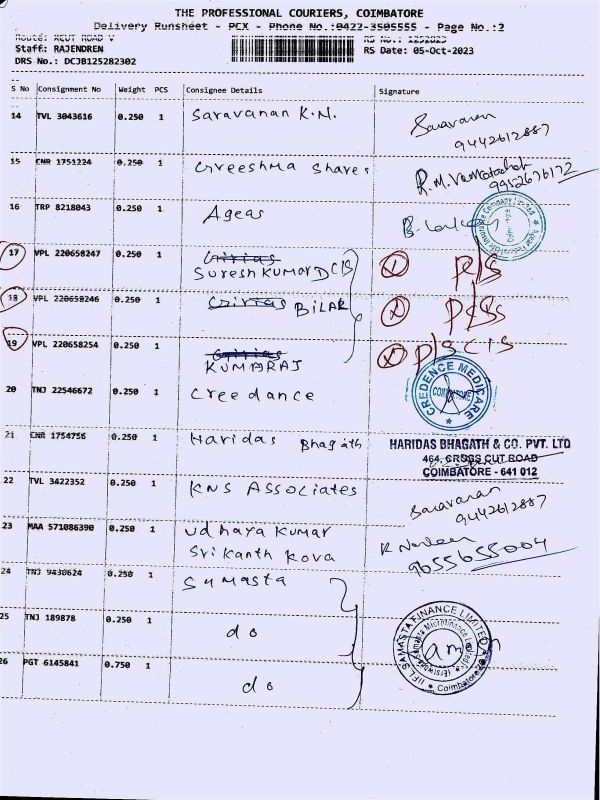 THE PROFESSIONAL COURIERS, COIMBATORE
Delivery Runsheet - PCX - Phone No.:0422-3505555 - Page No.:2
RS No.: 1252823
Staff: RAJENDREN RS Date: 05-Oct-2023
DRS No.: DCJB125282302
S No Consignment No Weight PCS Consignee Details Signature
14 TVL 3043616 0.250 1 Saravanan K.N. Saravanan
9442612887
15 CNR 1751224 0.250 1 Greeshma Shares R.M.Venkatachalam
9952676172
16 TRP 8218043 0.250 1 Ageas
17 VPL 220658247 0.250 1 Girias
SURESH KUMAR CIS P/S
18 VPL 220658246 0.250 1 Girias BILAR P/S
19 VPL 220658254 0.250 1 Girias P/S CIS
KUMARAJ
20 TNJ 22546672 0.250 1 Creedance CREDENCE MEDICARE
COIMBATORE
21 CNR 1754756 0.250 1 Haridas Bhagath HARIDAS BHAGATH & CO. PVT. LTD
464, CROSS CUT ROAD
COIMBATORE - 641 012
22 TVL 3422352 0.250 1 KNS Associates Saravanan
9442612887
23 MAA 571086390 0.250 1 Udhaya Kumar
Srikanth Kova 9655655004
24 TNJ 9430624 0.250 1 Sumasta
25 TNJ 189878 0.250 1 do IIFL SAMASTA FINANCE LIMITED
Coimbatore
26 PGT 6145841 0.750 1 do